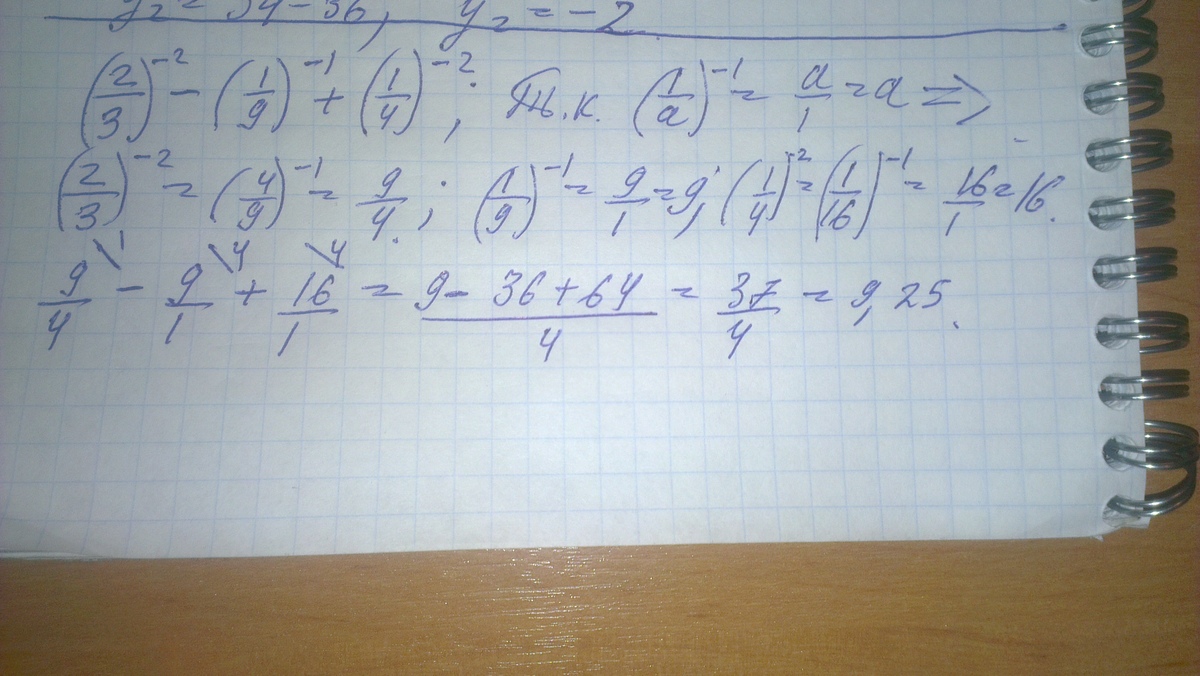 y₂ = 34 - 36, y₂ = -2
(2/3)⁻² - (1/9)⁻¹ + (1/4)⁻²; Т.к. (1/a)⁻¹ = a/1 = a =>
(2/3)⁻² = (4/9)⁻¹ = 9/4; (1/9)⁻¹ = 9/1 = 9; (1/4)⁻² = (1/16)⁻¹ = 16/1 = 16.
9/4 \1 - 9/1 \4 + 16/1 \4 = (9 - 36 + 64)/4 = 37/4 = 9,25.